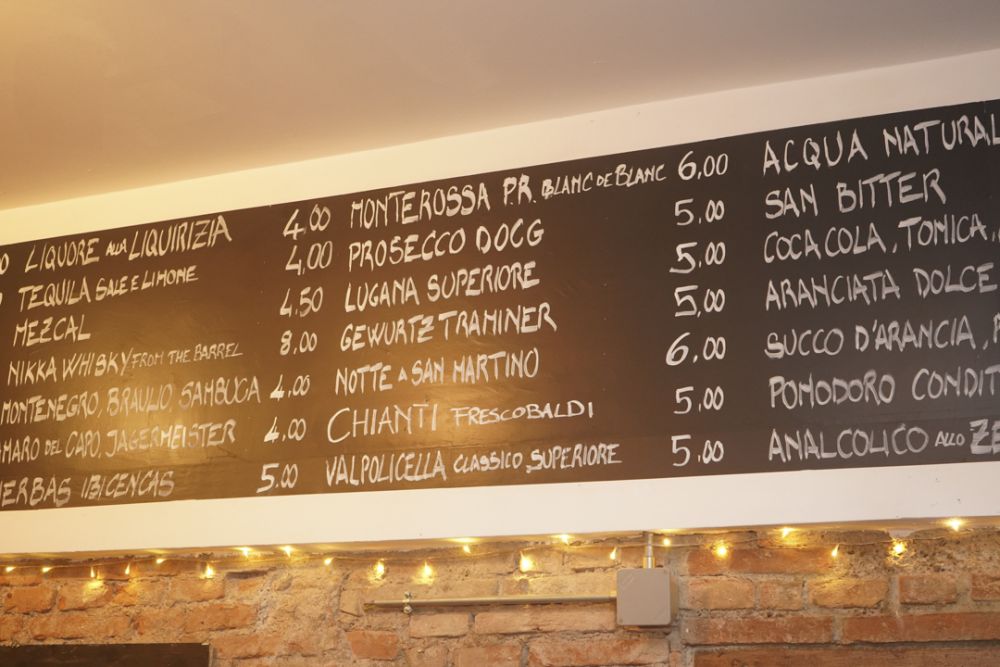 LIQUORE ALLA LIQUIRIZIA 4,00
TEQUILA SALE E LIMONE 4,00
MEZCAL 4,50
NIKKA WHISKY FROM THE BARREL 8,00
MONTENEGRO, BRAULIO, SAMBUCA 4,00
AMARO DEL CAPO, JAGERMEISTER 4,00
HERBAS IBICENCAS 5,00
MONTEROSSA P.R. BLANC DE BLANC 6,00
PROSECCO DOCG 5,00
LUGANA SUPERIORE 5,00
GEWURTZTRAMINER 5,00
NOTTE A SAN MARTINO 6,00
CHIANTI FRESCOBALDI 5,00
VALPOLICELLA CLASSICO SUPERIORE 5,00
ACQUA NATURAL
SAN BITTER
COCA COLA, TONICA,
ARANCIATA DOLCE
SUCCO D'ARANCIA,
POMODORO CONDIT
ANALCOLICO ALLO ZE